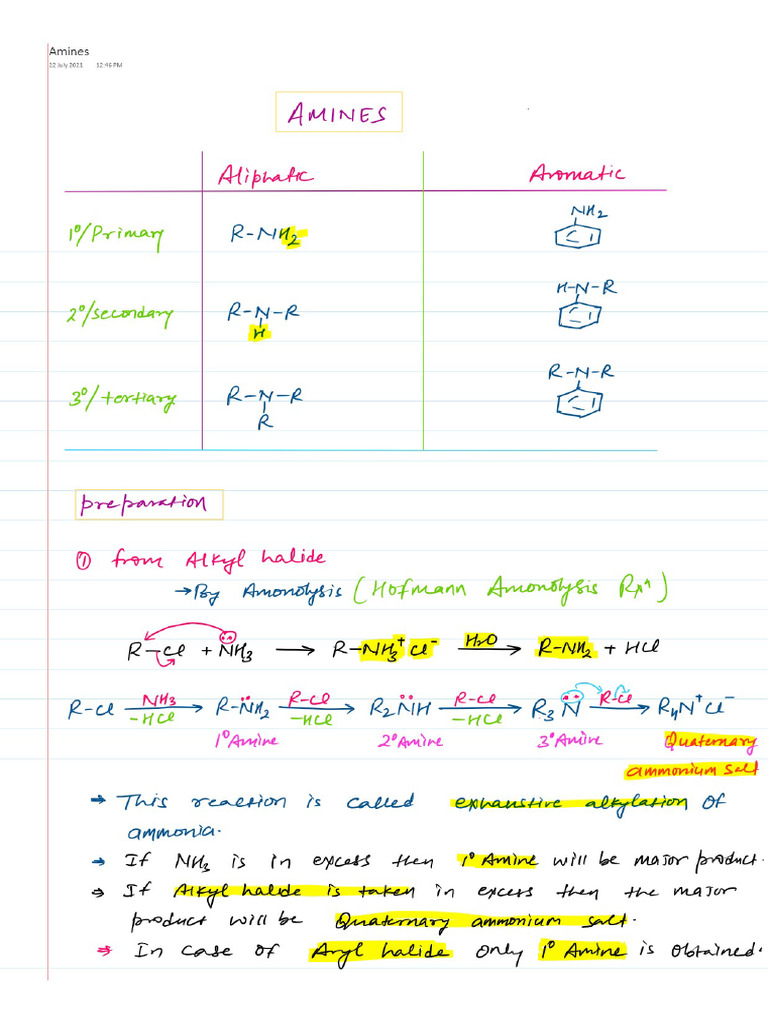 Amines
22 July 2021 12:46 PM
AMINES
Aliphatic Aromatic
1°/Primary R-NH2 NH2
2°/secondary R-N-R H-N-R
H
3°/tertiary R-N-R R-N-R
R
preparation
① from Alkyl halide
→ By Amonolysis (Hofmann Amonolysis Rxⁿ)
R-Cl + NH3 → R-NH3⁺Cl⁻ H2O → R-NH2 + HCl
R-Cl NH3 -HCl → R-NH2 R-Cl -HCl → R2NH R-Cl -HCl → R3N R-Cl → R4N⁺Cl⁻
1° Amine 2° Amine 3° Amine Quaternary
ammonium salt
→ This reaction is called exhaustive alkylation of
ammonia.
→ If NH3 is in excess then 1° Amine will be major product.
→ If Alkyl halide is taken in excess then the major
product will be Quaternary ammonium salt.
→ In case of Aryl halide only 1° Amine is obtained.